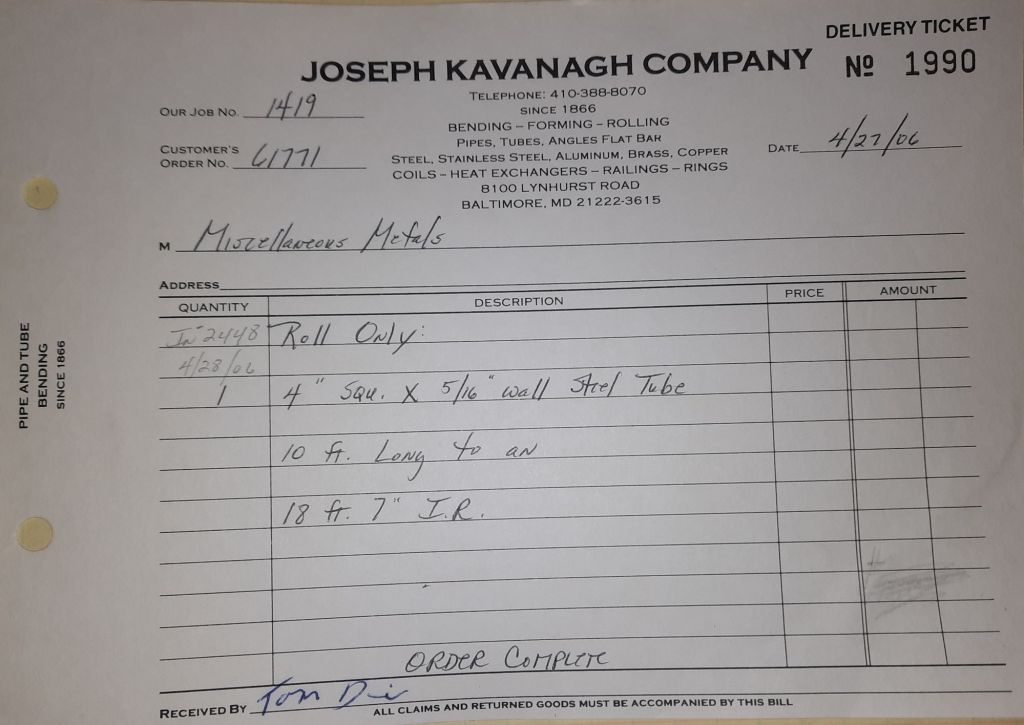 DELIVERY TICKET
JOSEPH KAVANAGH COMPANY
Nº 1990
TELEPHONE: 410-388-8070
SINCE 1866
BENDING – FORMING – ROLLING
PIPES, TUBES, ANGLES FLAT BAR
STEEL, STAINLESS STEEL, ALUMINUM, BRASS, COPPER
COILS – HEAT EXCHANGERS – RAILINGS – RINGS
8100 LYNHURST ROAD
BALTIMORE, MD 21222-3615
OUR JOB NO. 1419
CUSTOMER'S
ORDER NO. 61771
DATE 4/27/06
M Miscellaneous Metals
ADDRESS
QUANTITY DESCRIPTION PRICE AMOUNT
2448 Roll Only:
4/28/06
1 4" Squ. X 5/16" wall Steel Tube
10 ft. Long to an
18 ft. 7" I.R.
ORDER COMPLETE
RECEIVED BY Tom
ALL CLAIMS AND RETURNED GOODS MUST BE ACCOMPANIED BY THIS BILL
PIPE AND TUBE
BENDING
SINCE 1866